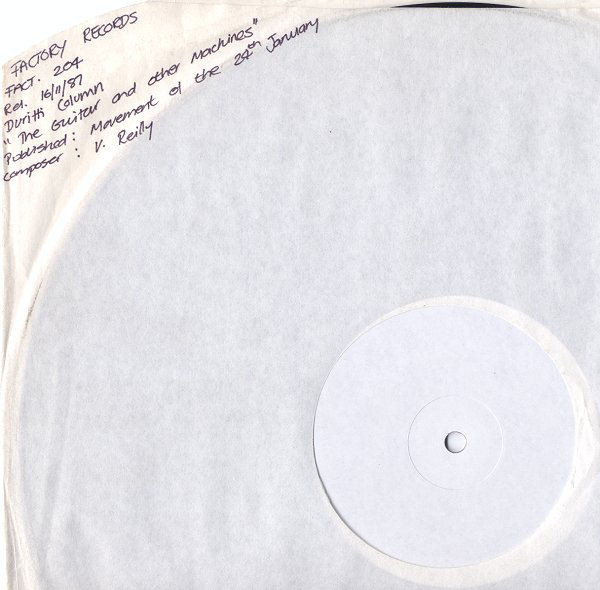 FACTORY RECORDS
FACT. 204
Rel. 16/11/87
Duritti Column
"The Guitar and other Machines"
Published: Movement of the 24th January
Composer: V. Reilly